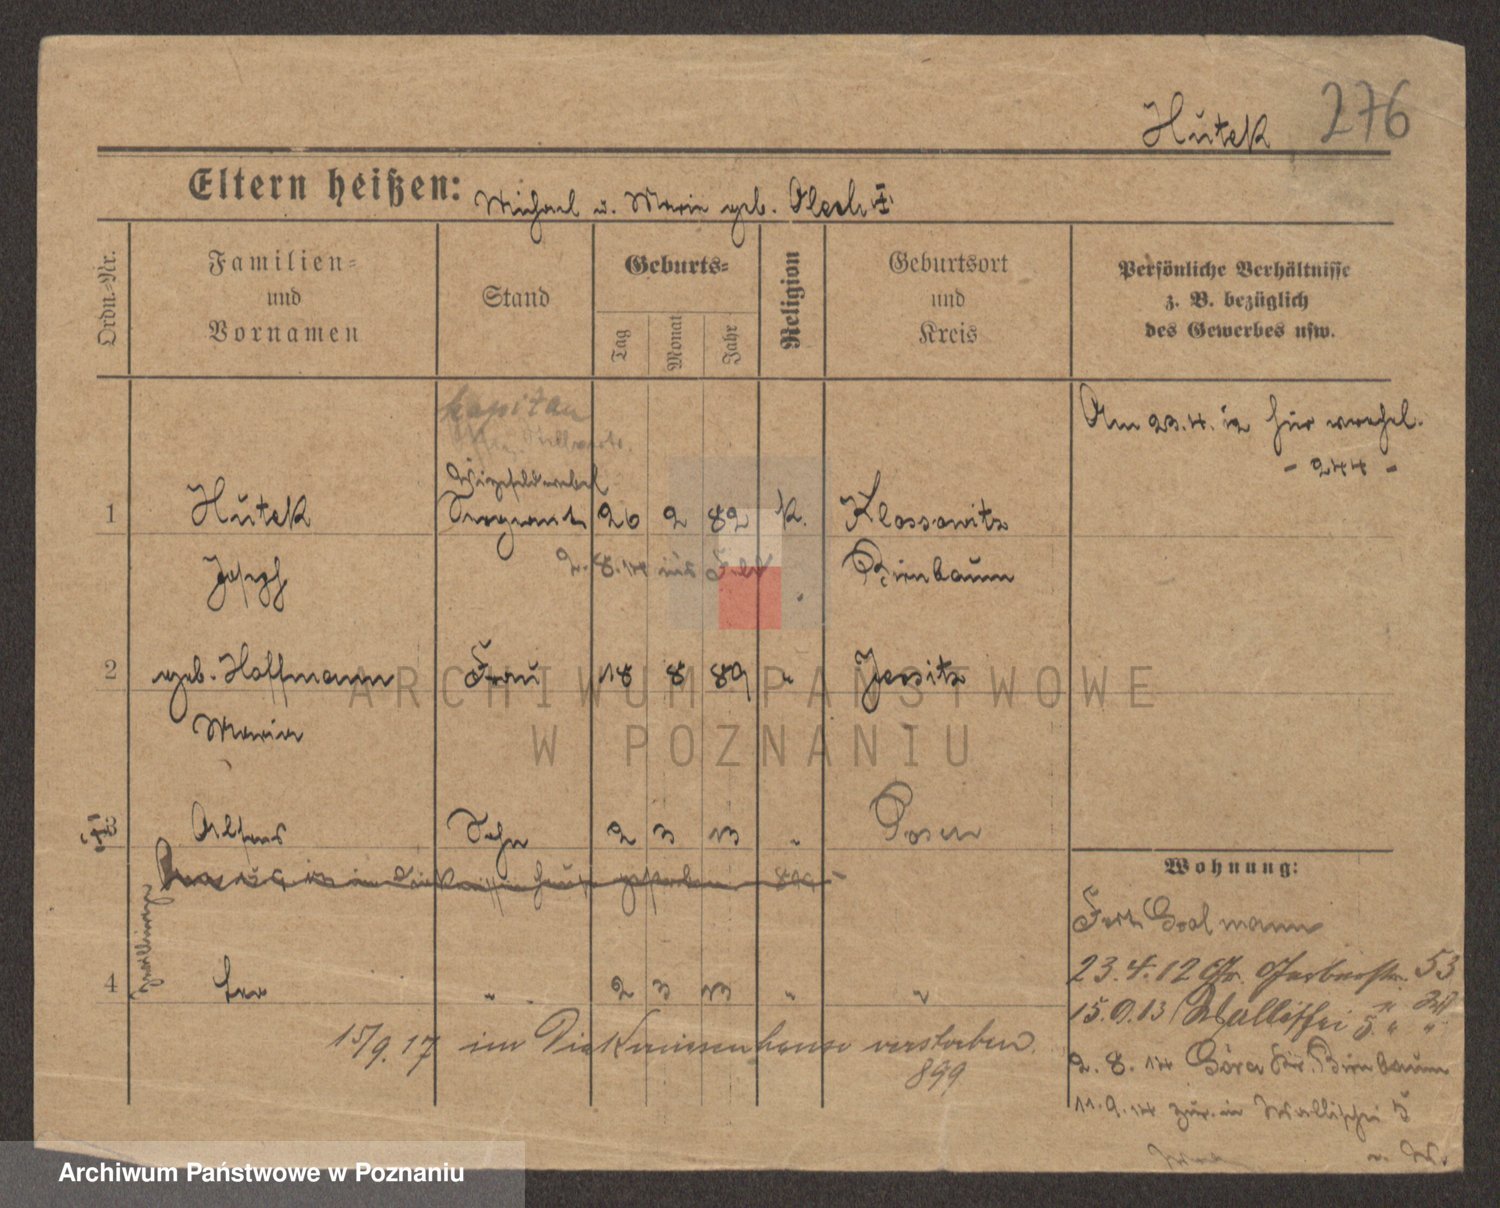 Hutek 276
Eltern heißen: Michael u. Marie geb.
Ordn.-Nr.
Familien-
und
Vornamen
Stand
Geburts-
Tag
Monat
Jahr
Religion
Geburtsort
und
Kreis
Persönliche Verhältnisse
z. B. bezüglich
des Gewerbes usw.
kapitan
Am 23.4.12 hier
- 244 -
Vizefeldwebel
1 Hutek Sergeant 26 2 82 k. Klossowitz
2.8.14 ins Feld
Joseph Birnbaum
2 geb. Hoffmann Frau 18 8 89 " Jersitz
Maria
3 Alfons Sohn 2 3 13 " Posen
Wohnung:
Zwillinge
Fort Grolmann
4 Leo " 2 3 13 " "
23.4.12 Gr. Gerberstr. 53
15.9.13 Wallischei 5
15/9.17 im Diakonissenhause verstorben.
899
2.8.14 Góra Kr. Birnbaum
11.9.14 zur. in Wallischei 5
ARCHIWUM PAŃSTWOWE
W POZNANIU
Archiwum Państwowe w Poznaniu